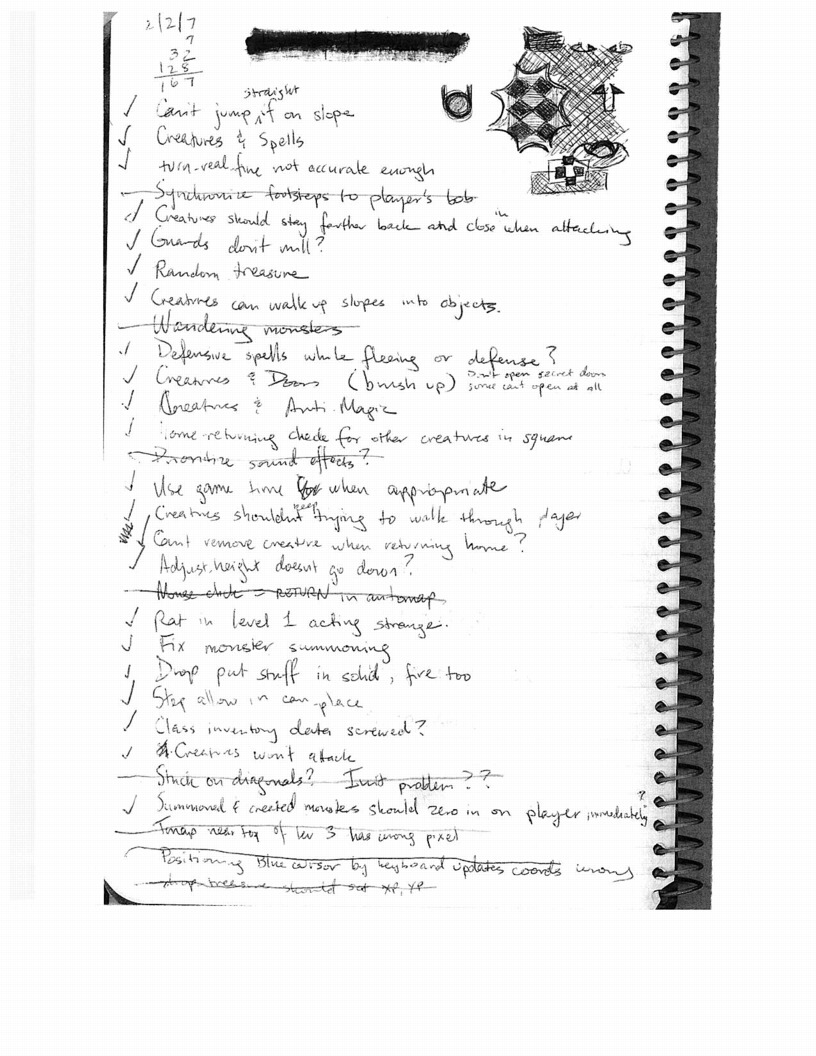 2/2/7
7
32
128
167
straight
Can't jump if on slope
Creatures & Spells
turn-real-fine not accurate enough
Synchronize footsteps to player's bob
Creatures should stay farther back and close in when attacking
Guards don't mill?
Random treasure
Creatures can walk up slopes into objects.
Wandering monsters
Defensive spells while fleeing or defense?
Creatures & Doors (brush up) Don't open secret doors
some can't open at all
Creatures & Anti-Magic
home-returning check for other creatures in square
Prioritize sound effects?
Use game time when appropriate
Creatures shouldn't keep trying to walk through player
Can't remove creature when returning home?
Adjust-height doesn't go down?
Mouse click = RETURN in automap
Rat in level 1 acting strange.
Fix monster summoning
Drop put stuff in solid, fire too
Step allow in can-place
Class inventory data screwed?
Creatures won't attack
Stuck on diagonals? Init problem??
Summoned & created monsters should zero in on player immediately?
Tmap near top of lev 3 has wrong pixel
Positioning Blue cursor by keyboard updates coords wrong
drop treasure should set XP, YP